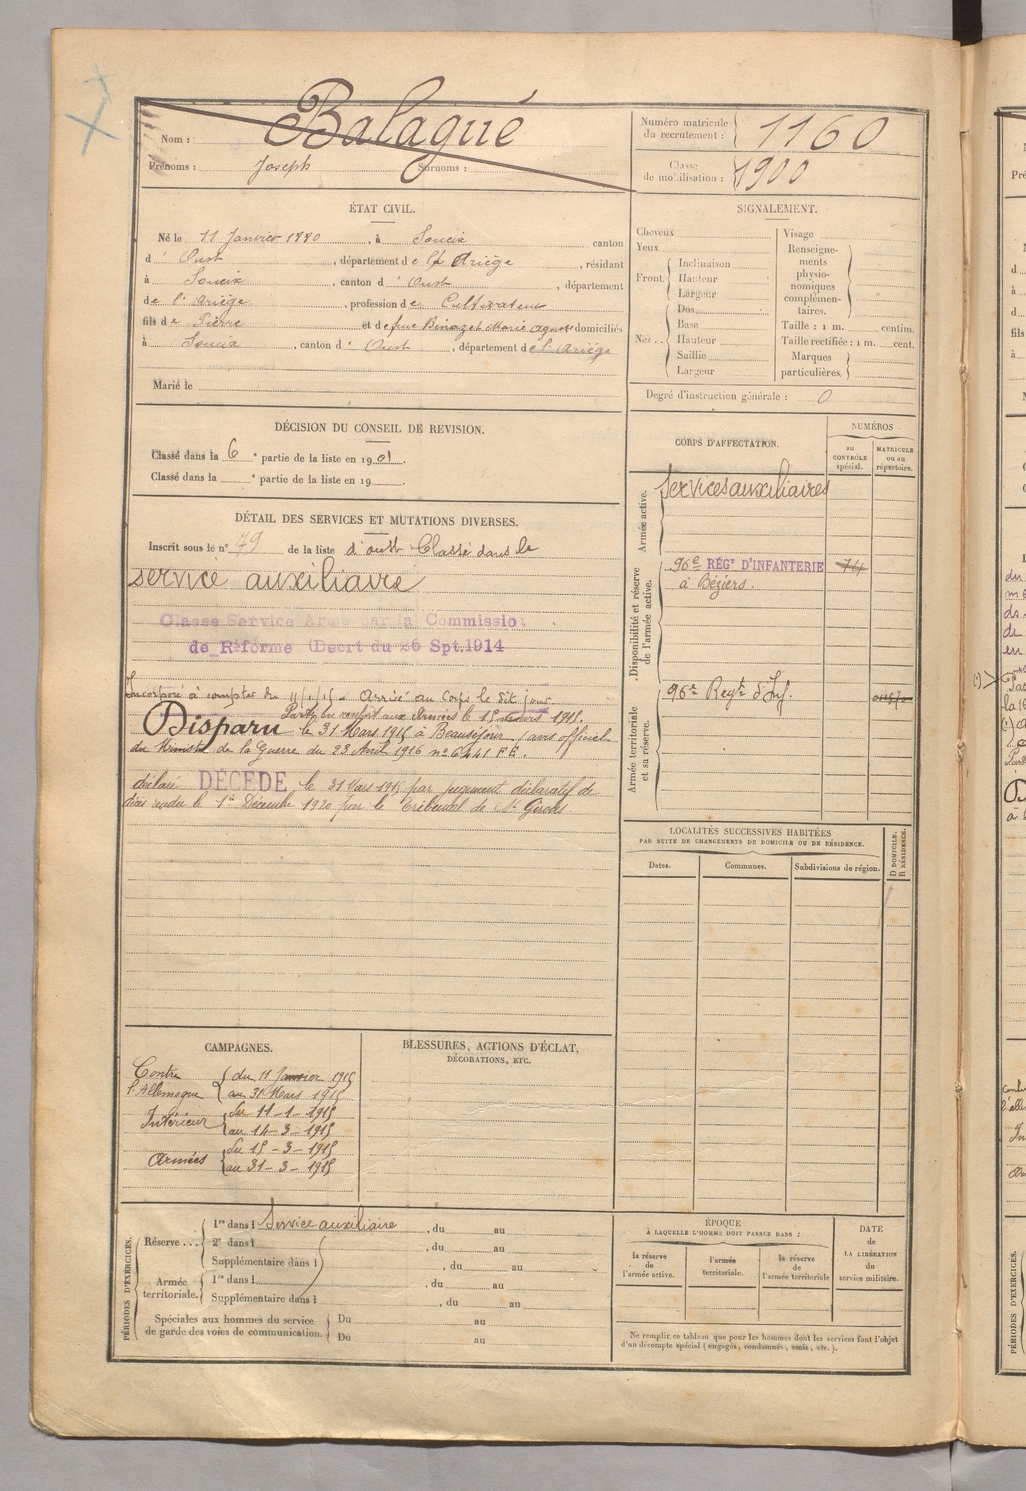 Nom : Balagué
Prénoms : Joseph Surnoms :
Numéro matricule du recrutement : 1160
Classe de mobilisation : 1900
ÉTAT CIVIL.
Né le 11 Janvier 1880, à Soueix canton
d' Oust, département de l' Ariège, résidant
à Soueix, canton d' Oust, département
de l' Ariège, profession de Cultivateur
fils de Pierre et de feue Binazet Marie domiciliés
à Soueix, canton d' Oust, département de l' Ariège
Marié le
SIGNALEMENT.
Cheveux
Yeux
Front. Inclinaison
Hauteur
Largeur
Nez .. Dos
Base
Hauteur
Saillie
Largeur
Visage
Renseignements physionomiques complémentaires.
Taille : 1 m. centim.
Taille rectifiée : 1 m. cent.
Marques particulières.
Degré d'instruction générale : 0
DÉCISION DU CONSEIL DE REVISION.
Classé dans la 6e partie de la liste en 1901.
Classé dans la e partie de la liste en 19 .
DÉTAIL DES SERVICES ET MUTATIONS DIVERSES.
Inscrit sous le n° 79 de la liste d'oust Classé dans le
service auxiliaire
Classe Service Armé par la Commission
de Réforme (Decrt du 26 Spt.1914
Incorporé à compter du 11/1/15 - Arrivé au Corps le dit jour.
Parti en renfort aux Armées le 15 Mars 1915.
Disparu le 31 Mars 1915 à Beauséjour (avis officiel
du Ministre de la Guerre du 23 Avril 1916 n° 6441 FE.
déclaré DÉCÉDÉ le 31 Mars 1915 par jugement déclaratif de
décès rendu le 1er Décembre 1920 par le Tribunal de St Girons
CORPS D'AFFECTATION.
NUMÉROS
au CONTRÔLE spécial.
MATRICULE ou au répertoire.
Armée active.
Services auxiliaires
Disponibilité et réserve de l'armée active.
96e RÉGt D'INFANTERIE 74
à Béziers.
Armée territoriale et sa réserve.
96e Regt d'Inf.
LOCALITÉS SUCCESSIVES HABITÉES
PAR SUITE DE CHANGEMENTS DE DOMICILE OU DE RÉSIDENCE.
Dates.
Communes.
Subdivisions de région.
D DOMICILE.
R RÉSIDENCE.
CAMPAGNES.
Contre l'Allemagne du 11 Janvier 1915
au 31 Mars 1915
Intérieur du 11-1-1915
au 14-3-1915
Armées du 15-3-1915
au 31-3-1915
BLESSURES, ACTIONS D'ÉCLAT,
DÉCORATIONS, ETC.
PÉRIODES D'EXERCICES.
Réserve ... 1re dans l Service auxiliaire, du au
2e dans l , du au
Supplémentaire dans l , du au
Armée territoriale. 1re dans l , du au
Supplémentaire dans l , du au
Spéciales aux hommes du service de garde des voies de communication. Du au
Du au
ÉPOQUE
À LAQUELLE L'HOMME DOIT PASSER DANS :
la réserve de l'armée active.
l'armée territoriale.
la réserve de l'armée territoriale
DATE de LA LIBÉRATION du service militaire.
Ne remplir ce tableau que pour les hommes dont les services font l'objet
d'un décompte spécial (engagés, condamnés, omis, etc.).